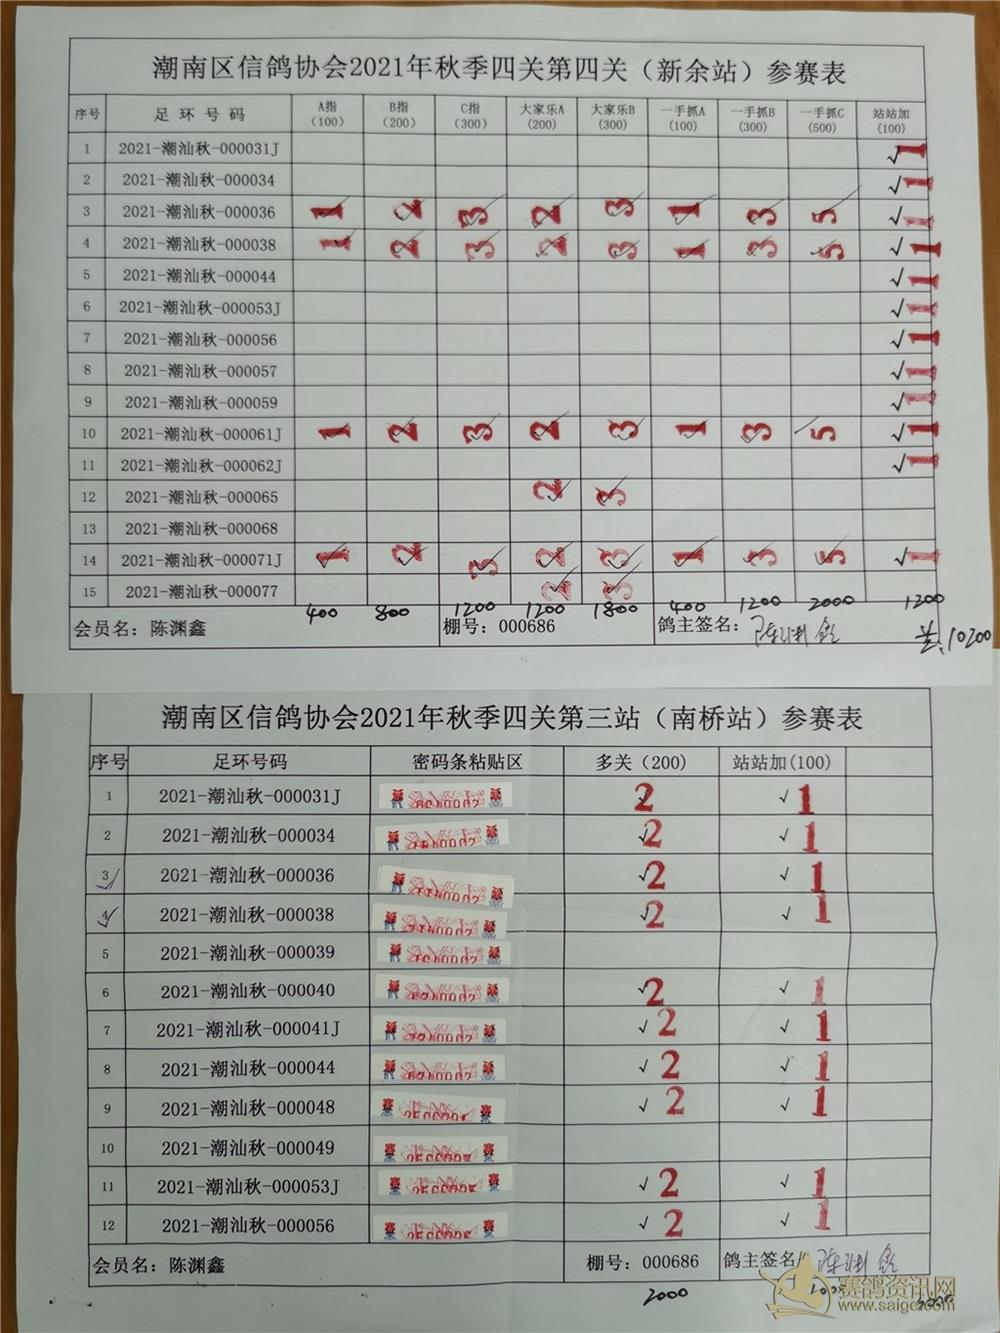 潮南区信鸽协会2021年秋季四关第四关（新余站）参赛表
序号 足环号码 A指（100） B指（200） C指（300） 大家乐A(200) 大家乐B(300) 一手抓A(100) 一手抓B(300) 一手抓C(500) 站站加(100)
1 2021-潮汕秋-000031J √ 1
2 2021-潮汕秋-000034 √ 1
3 2021-潮汕秋-000036 1 2 3 2 3 1 3 5 √ 1
4 2021-潮汕秋-000038 1 2 3 2 3 1 3 5 √ 1
5 2021-潮汕秋-000044 √ 1
6 2021-潮汕秋-000053J √ 1
7 2021-潮汕秋-000056 √ 1
8 2021-潮汕秋-000057 √ 1
9 2021-潮汕秋-000059 √ 1
10 2021-潮汕秋-000061J 1 2 3 2 3 1 3 5 √ 1
11 2021-潮汕秋-000062J √ 1
12 2021-潮汕秋-000065 2 3
13 2021-潮汕秋-000068
14 2021-潮汕秋-000071J 1 2 3 2 3 1 3 5 √ 1
15 2021-潮汕秋-000077 2 3
400 800 1200 1200 1800 400 1200 2000 1200
会员名：陈渊鑫 棚号：000686 鸽主签名：
共10200
潮南区信鸽协会2021年秋季四关第三站（南桥站）参赛表
序号 足环号码 密码条粘贴区 多关（200) 站站加(100)
1 2021-潮汕秋-000031J √ 2 √ 1
2 2021-潮汕秋-000034 √ 2 √ 1
3 2021-潮汕秋-000036 √ 2 √ 1
4 2021-潮汕秋-000038 √ 2 √ 1
5 2021-潮汕秋-000039
6 2021-潮汕秋-000040 √ 2 √ 1
7 2021-潮汕秋-000041J √ 2 √ 1
8 2021-潮汕秋-000044 √ 2 √ 1
9 2021-潮汕秋-000048 √ 2 √ 1
10 2021-潮汕秋-000049
11 2021-潮汕秋-000053J √ 2 √ 1
12 2021-潮汕秋-000056 √ 2 √ 1
会员名：陈渊鑫 棚号：000686 鸽主签名
2000
赛鸽资讯网
www.saige.com